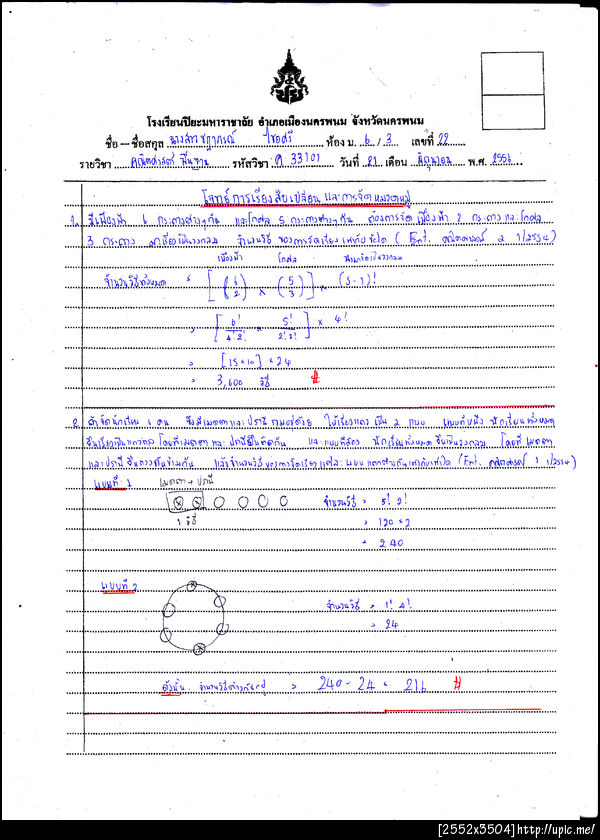 โรงเรียนปิยะมหาราชาลัย อำเภอเมืองนครพนม จังหวัดนครพนม
ชื่อ – ชื่อสกุล นางสาว ไชยศรี ห้อง ม. 6 / 3 เลขที่ 22
รายวิชา คณิตศาสตร์ พื้นฐาน รหัสวิชา ค 33101 วันที่ 21 เดือน มิถุนายน พ.ศ. 2556
โจทย์การเรียงสับเปลี่ยน และการจัดหมวดหมู่
1. มีเฟื่องฟ้า 6 กระถางต่างๆกัน และโกศล 5 กระถางต่างๆกัน ต้องการจัดเฟื่องฟ้า 2 กระถาง และโกศล
3 กระถาง มาเรียงเป็นวงกลม จำนวนวิธี ของการจัดเรียงเท่ากับข้อใด ( Ent. คณิตศาสตร์ 2 1/2534 )
เฟื่องฟ้า โกศล
จำนวนวิธีทั้งหมด = [ (6 2) × (5 3) ] × (5-1)!
= [ 6!/4!2! × 5!/2!3! ] × 4!
= [15×10] × 24
= 3,600 วิธี #
2. ถ้าจัดนักเรียน คน ซึ่งมีเมตตาและปรานีรวมอยู่ด้วย ให้เรียงแถวเป็น 2 แบบ แบบที่หนึ่ง นักเรียนทั้งหมด
ยืนเรียงเป็นแถวตรง โดยที่เมตตา และ ปรานียืนติดกัน และแบบที่สอง นักเรียนทั้งหมดยืนเป็นวงกลม โดยที่ เมตตา
และปรานี ยืนตรงกันข้ามกัน แล้วจำนวนวิธี ของการจัดเรียงแต่ละแบบ แตกต่างกันเท่ากับเท่าใด (Ent. คณิตศาสตร์ 1 1/2534)
แบบที่ 1 เมตตา + ปรานี
จำนวนวิธี = 5! 2!
1 วิธี = 120 × 2
= 240
แบบที่ 2
จำนวนวิธี = 1! 4!
= 24
ดังนั้น จำนวนวิธีต่างกันอยู่ = 240 - 24 = 216 #
[2552x3504] http://upic.me/